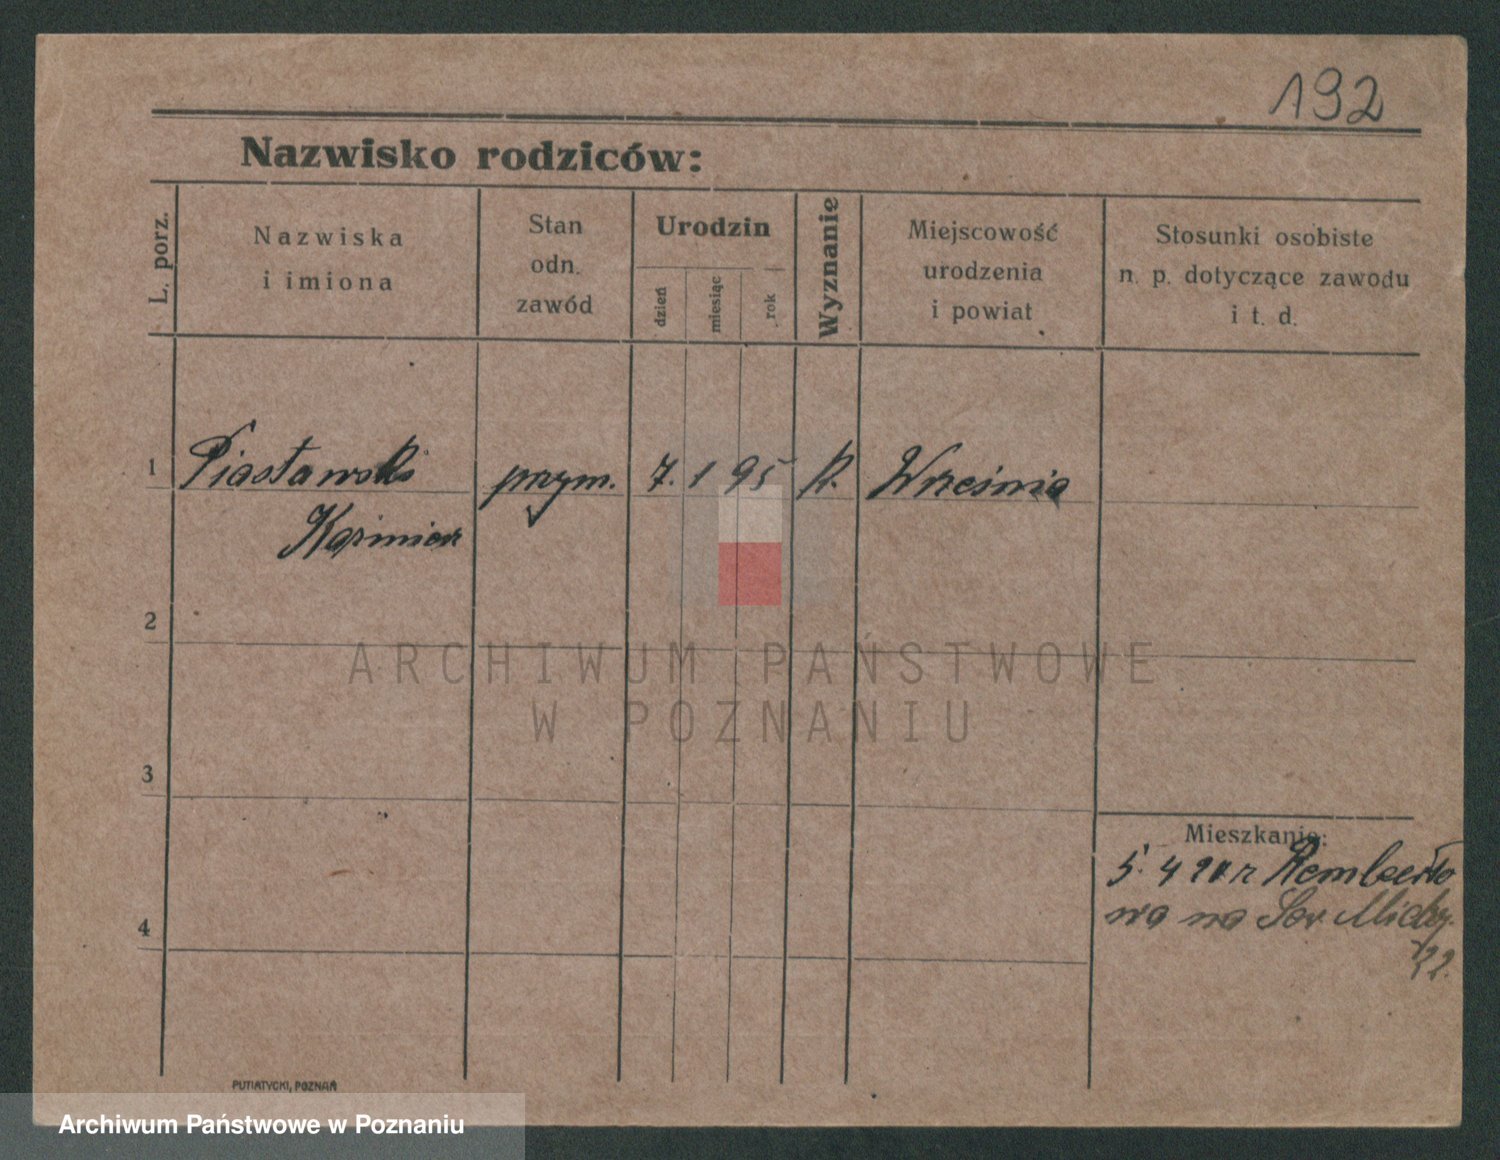 192
Nazwisko rodziców:
L. porz.
Nazwiska
i imiona
Stan
odn.
zawód
Urodzin
dzień
miesiąc
rok
Wyznanie
Miejscowość
urodzenia
i powiat
Stosunki osobiste
n. p. dotyczące zawodu
i t. d.
1 Piastowski przym. 7. 1 95 k. Września
Kazimierz
2
3
4
Mieszkanie:
5. 4 Remberto
wa na
22.
ARCHIWUM PAŃSTWOWE
W POZNANIU
PUTIATYCKI, POZNAŃ
Archiwum Państwowe w Poznaniu